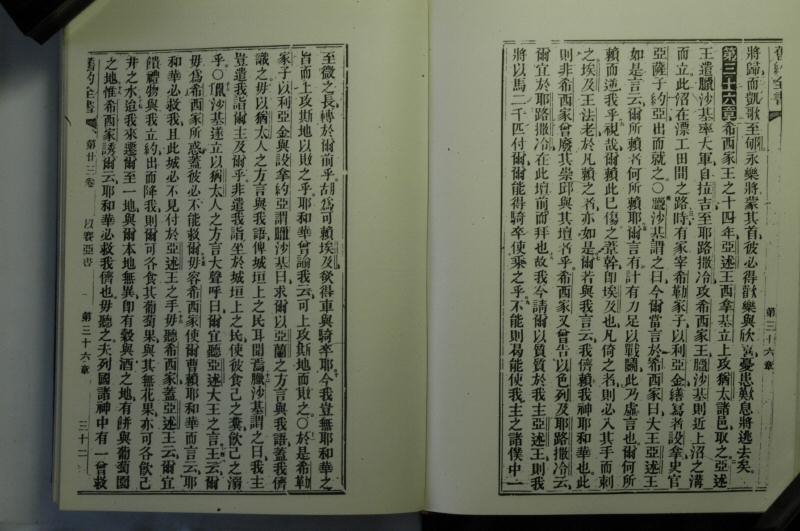 舊約全書
第三十六章
將歸而凱歌至郇永樂將蒙其首彼必得歡樂與欣喜憂患歎息將逃去矣
第三十六章希西家王之十四年亞述王西拿基立上攻猶太諸邑取之亞述
王遣臘沙基率大軍自拉吉至耶路撒冷攻希西家王臘沙基則近上沼之溝
而立此沼在漂工田間之路時有家宰希勒家子以利亞金繕寫者設拿史官
亞薩子約亞出而就之〇臘沙基謂之曰今爾當言於希西家曰大王亞述王
如是言云爾所賴者何所賴耶爾言有計有力足以戰鬬此乃虛言也爾何所
賴而逆我乎視哉爾賴此已傷之葦幹卽埃及也凡倚之者則必入其手而刺
之埃及王法老於凡賴之者亦如是爾若與我言云我儕賴我神耶和華也此
則非希西家曾廢其崇邱與其壇者乎希西家又曾告以色列及耶路撒冷云
爾宜於耶路撒冷在此壇前而拜也故我今請爾以質質於我主亞述王則我
將以馬二千匹付爾爾能得騎卒使乘之乎不能則曷能使我主之諸僕中一
至微之長轉於爾前乎胡爲可賴埃及欲得車與騎卒耶今我豈無耶和華之
旨而上攻斯地以敗之乎耶和華曾諭我云可上攻斯地而敗之〇於是希勒
家子以利亞金與設拿約亞謂臘沙基曰求爾以亞蘭之方言與我語蓋我儕
識之毋以猶太人之方言與我語俾城垣上之民耳聞焉臘沙基謂之曰我主
豈遣我詣爾主及爾乎非遣我詣坐於城垣上之民使彼食己之糞飲己之溺
乎〇臘沙基遂立以猶太人之方言大聲呼曰爾宜聽亞述大王之言王云爾
毋爲希西家所誘惑蓋彼必不能救爾毋容希西家使爾曹賴耶和華而言云耶
和華必救我且此城必不見付於亞述王之手毋聽希西家蓋亞述王云爾宜
饋禮物與我立約出而降我則爾可各食其葡萄果與其無花果亦可各飲己
井之水迨我來遷爾至一地與爾本地無異卽有穀與酒之地有餅與葡萄園
之地惟希西家誘爾云耶和華必救我儕也毋聽之夫列國諸神中有一曾救
舊約全書
第廿三卷
以賽亞書
第三十六章
三十二